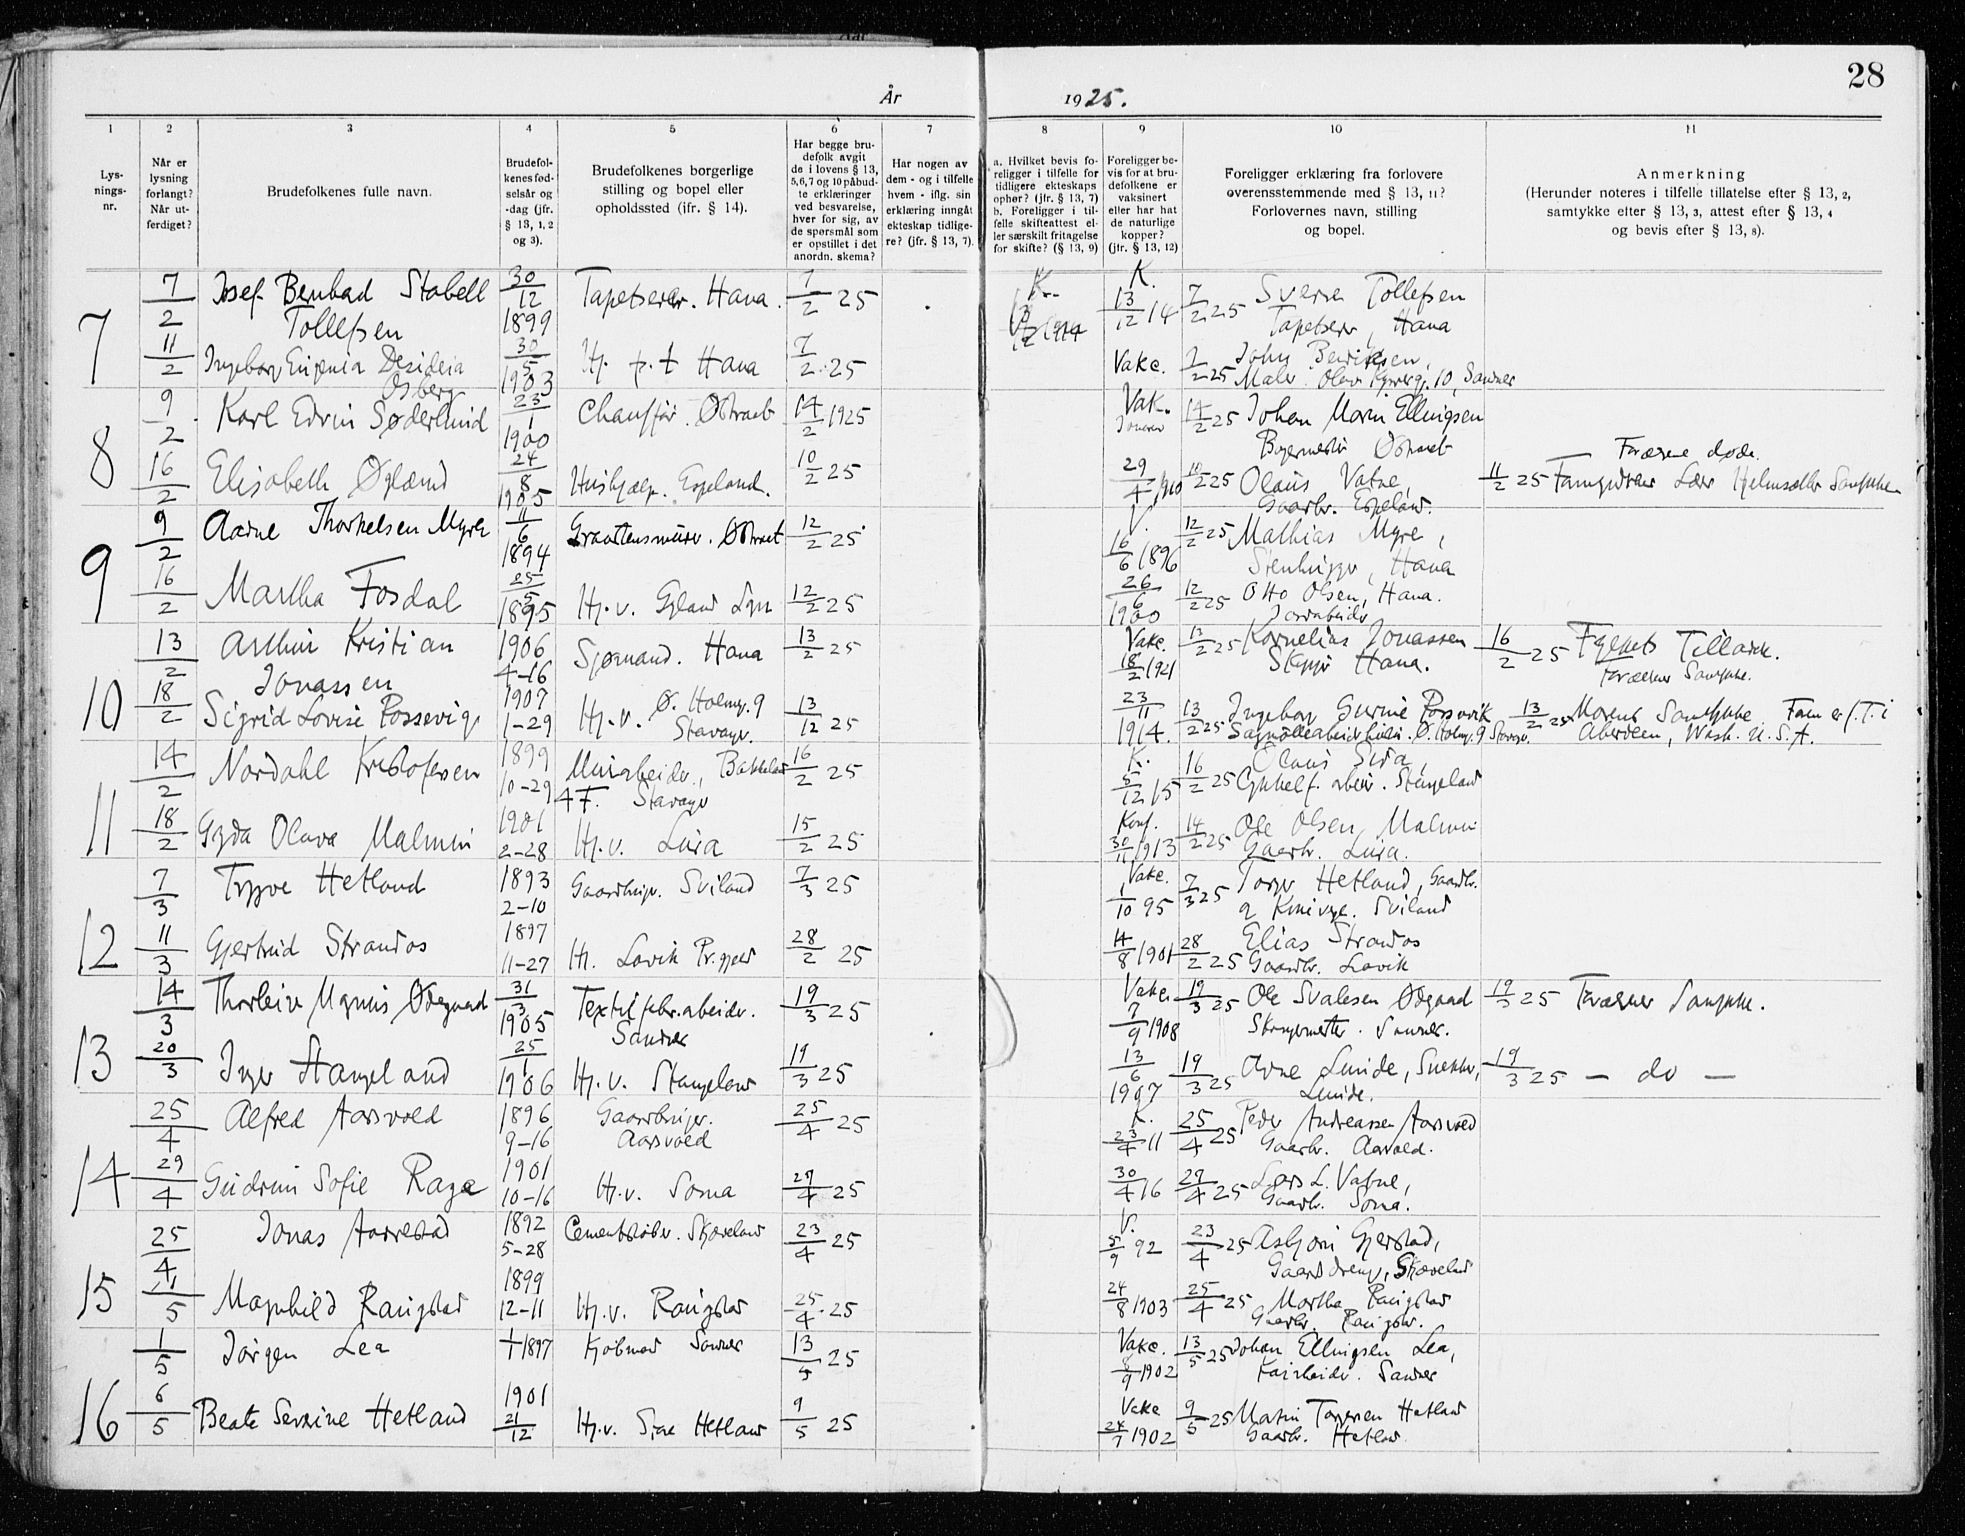 28
År 1925.
1 2 3 4 5 6 7 8 9 10 11
Lysningsnr.
Når er lysning forlangt? Når utferdiget?
Brudefolkenes fulle navn.
Brudefolkenes fødselsår og -dag (jfr. § 13, 1, 2 og 3).
Brudefolkenes borgerlige stilling og bopel eller opholdssted (ifr. § 14).
Har begge brudefolk avgit de i lovens § 13, 5,6,7 og 10 påbudte erklæringer ved besvarelse, hver for sig, av de spørsmål som er opstillet i det anordn. skema?
Har nogen av dem - og i tilfelle hvem - iflg. sin erklæring inngåt ekteskap tidligere? (jfr. § 13, 7).
a. Hvilket bevis foreligger i tilfelle for tidligere ekteskaps ophør? (jfr. § 13, 7) b. Foreligger i tilfelle skifteattest eller særskilt fritagelse for skifte? (§ 13, 9)
Foreligger bevis for at brudefolkene er vaksinert eller har hat de naturlige kopper? (jfr. § 13, 12)
Foreligger erklæring fra forlovere overensstemmende med § 13, 11? Forlovernes navn, stilling og bopel.
Anmerkning (Herunder noteres i tilfelle tillatelse efter § 13, 2, samtykke efter § 13, 3, attest efter § 13, 4 og bevis efter § 13, 8).
7
7/2 Josef Bernhad Stabell Tollefsen 30/12 1899 Tapetserer. Hana. 7/2 25 K. 13/12 14 7/2 25 Sverre Tollefsen Tapetserer, Hana
11/2 Ingeborg Eugenia Desideia Osberg 30/5 1903 Hj. p.t Hana 7/2 25 Vakc. 7/2 25 John Maler. Olav 10, Sandnes
8
9/2 Karl Edvin Søderlund 23/1 1900 Chauffør. Østraat 14/2 1925 Vak. 14/2 25 Johan Ellingsen Østraat
16/2 Elisabeth Øglænd 24/8 1905 Hushjælp. Espeland. 10/2 25 29/4 1910 10/2 25 Olaus Vatne, Gaardbr. Espeland. Forældre døde. 11/2 25
9
9/2 Aadne Thorkelsen Myre 11/6 1894 Østraat 12/2 25 V. 16/6 1896 12/2 25 Mathias Myre, Stenhugger, Hana
16/2 Martha Fosdal 25/5 1895 Hj.v. 12/2 25 26/6 1900 12/2 25 Otto Olsen, Hana. Jordarbeider
10
13/2 Arthur Kristian Jonassen 1906 4-16 Sjømand. Hana 13/2 25 Vakc. 18/2 1921 13/2 25 Kornelius Jonassen Hana. 16/2 25 Fylkets Tillad. Forældres Samtykke.
18/2 Sigrid Lovise Possevig 1907 1-29 Hj.v. Ø. Holmg. 9 Stavanger. 13/12 25 23/11 1914. 13/2 25 Ingeborg Gurine Possevik Ø. Holmg. 9 Stavgr. 13/2 25 Morens Samtykke. Faren er f.T. i Aberdeen, Wash. U.S.A.
11
14/2 Nordahl Kristofersen 1899 10-29 Murarbeider, Bakkeland 47. Stavanger 16/2 25 K. 5/12 15 16/2 25 Olaus Cykkelf. arbeid. Stangeland
18/2 Gyda Olava Malmin 1901 2-28 Hj.v. Lura 15/2 25 Konf. 30/11 1913 14/2 25 Ole Olsen Malmin Gaardbr. Lura.
12
7/3 Trygve Hetland 1893 2-10 Gaardbruger. Sviland 7/3 25 Vakc. 1/10 95 7/3 25 Torger Hetland, Gaardbr. Sviland
11/3 Gjertrud Strandos 1897 11-27 Hj. Lovik 28/2 25 14/8 1901 28/2 25 Elias Strandos Gaardbr. Lovik
13
14/3 Thorleiv Magnus Ødegaard 31/3 1905 Textilfabr.arbeider. Sandnes 19/3 25 Vakc. 7/9 1908 19/3 25 Ole Svalesen Ødegaard Sandnes. 19/3 25 Forældres Samtykke.
20/3 Inger Stangeland 25/1 1906 Hj.v. Stangeland 19/3 25 13/6 1907 19/3 25 Arne Lunde, Snekker, Lunde. 19/3 25 — do —
14
25/4 Alfred Aarsvold 1896 9-16 Gaardbruger. Aarsvold 25/4 25 K. 23/4 11 25/4 25 Peder Andreassen Aarsvold Gaardbr. Aarsvold.
29/4 Gudrun Sofie Rage 1901 10-16 Hj.v. Soma 27/4 25 30/4 16 27/4 25 Lars L. Vatne, Gaardbr. Soma.
15
25/4 Jonas Aarrestad 1892 5-28 Cementstøber. Skjæveland 23/4 25 V. 5/9 92 23/4 25 Asbjørn Gjerstad, Gaardsdreng, Skjæveland
21/5 Magnhild Raugstad 1899 12-11 Hj.v. Raugstad 25/4 25 24/8 1903 25/4 25 Martha Raugstad Gaardbr. Raugstad.
16
1/5 Jørgen Lea 1/1 1897 Kjøbmand Sandnes 13/5 25 Vakc. 8/9 1902 13/5 25 Johan Ellingsen Lea, Sandnes
6/5 Beate Serine Hetland 1901 21/12 Hj.v. Hetland 9/5 25 Vakc 24/7 1902 9/5 25 Martin Torgersen Hetland Gaardbr. Hetland.